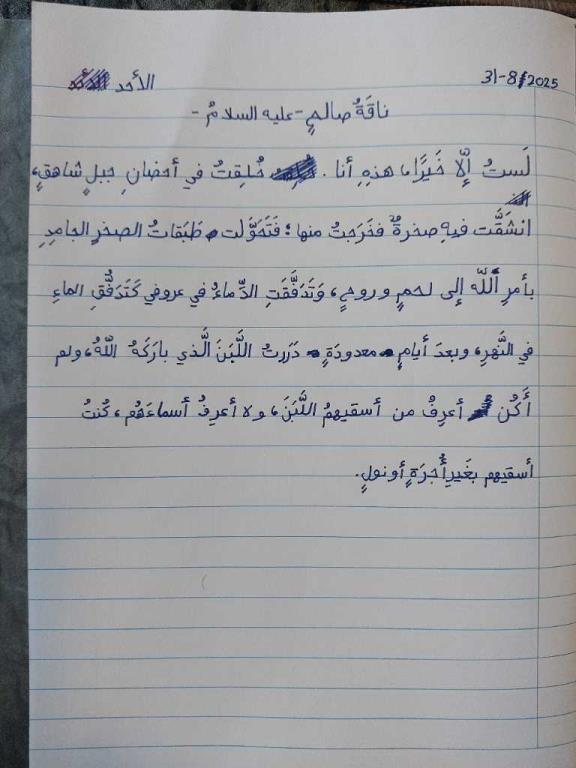 31-8-2025 الأحد
ناقَةُ صالحٍ - عليه السلامُ -
لَستُ إلّا خَيرًا، هذهِ أنا. خُلِقتُ في أحضانِ جبلٍ شاهقٍ،
انشَقَّت فيهِ صخرةٌ فخَرجتُ منها؛ فَتَحَوَّلت طَبَقاتُ الصخرِ الجامِدِ
بأمرِ اللّه إلى لحمٍ وروحٍ، وَتَدَفَّقَتِ الدِّماءُ في عروقي كَتَدفُّقِ الماءِ
في النَّهرِ، وبعدَ أيامٍ معدودَةٍ دَررتُ اللَّبَنَ الَّذي بارَكَهُ اللّهُ، ولم
أَكُن أعرِفُ من أسقيهمُ اللَّبَنَ، ولا أعرِفُ أسماءَهُم، كُنتُ
أسقيهم بغَيرِ أُجرَةٍ أو نولٍ.